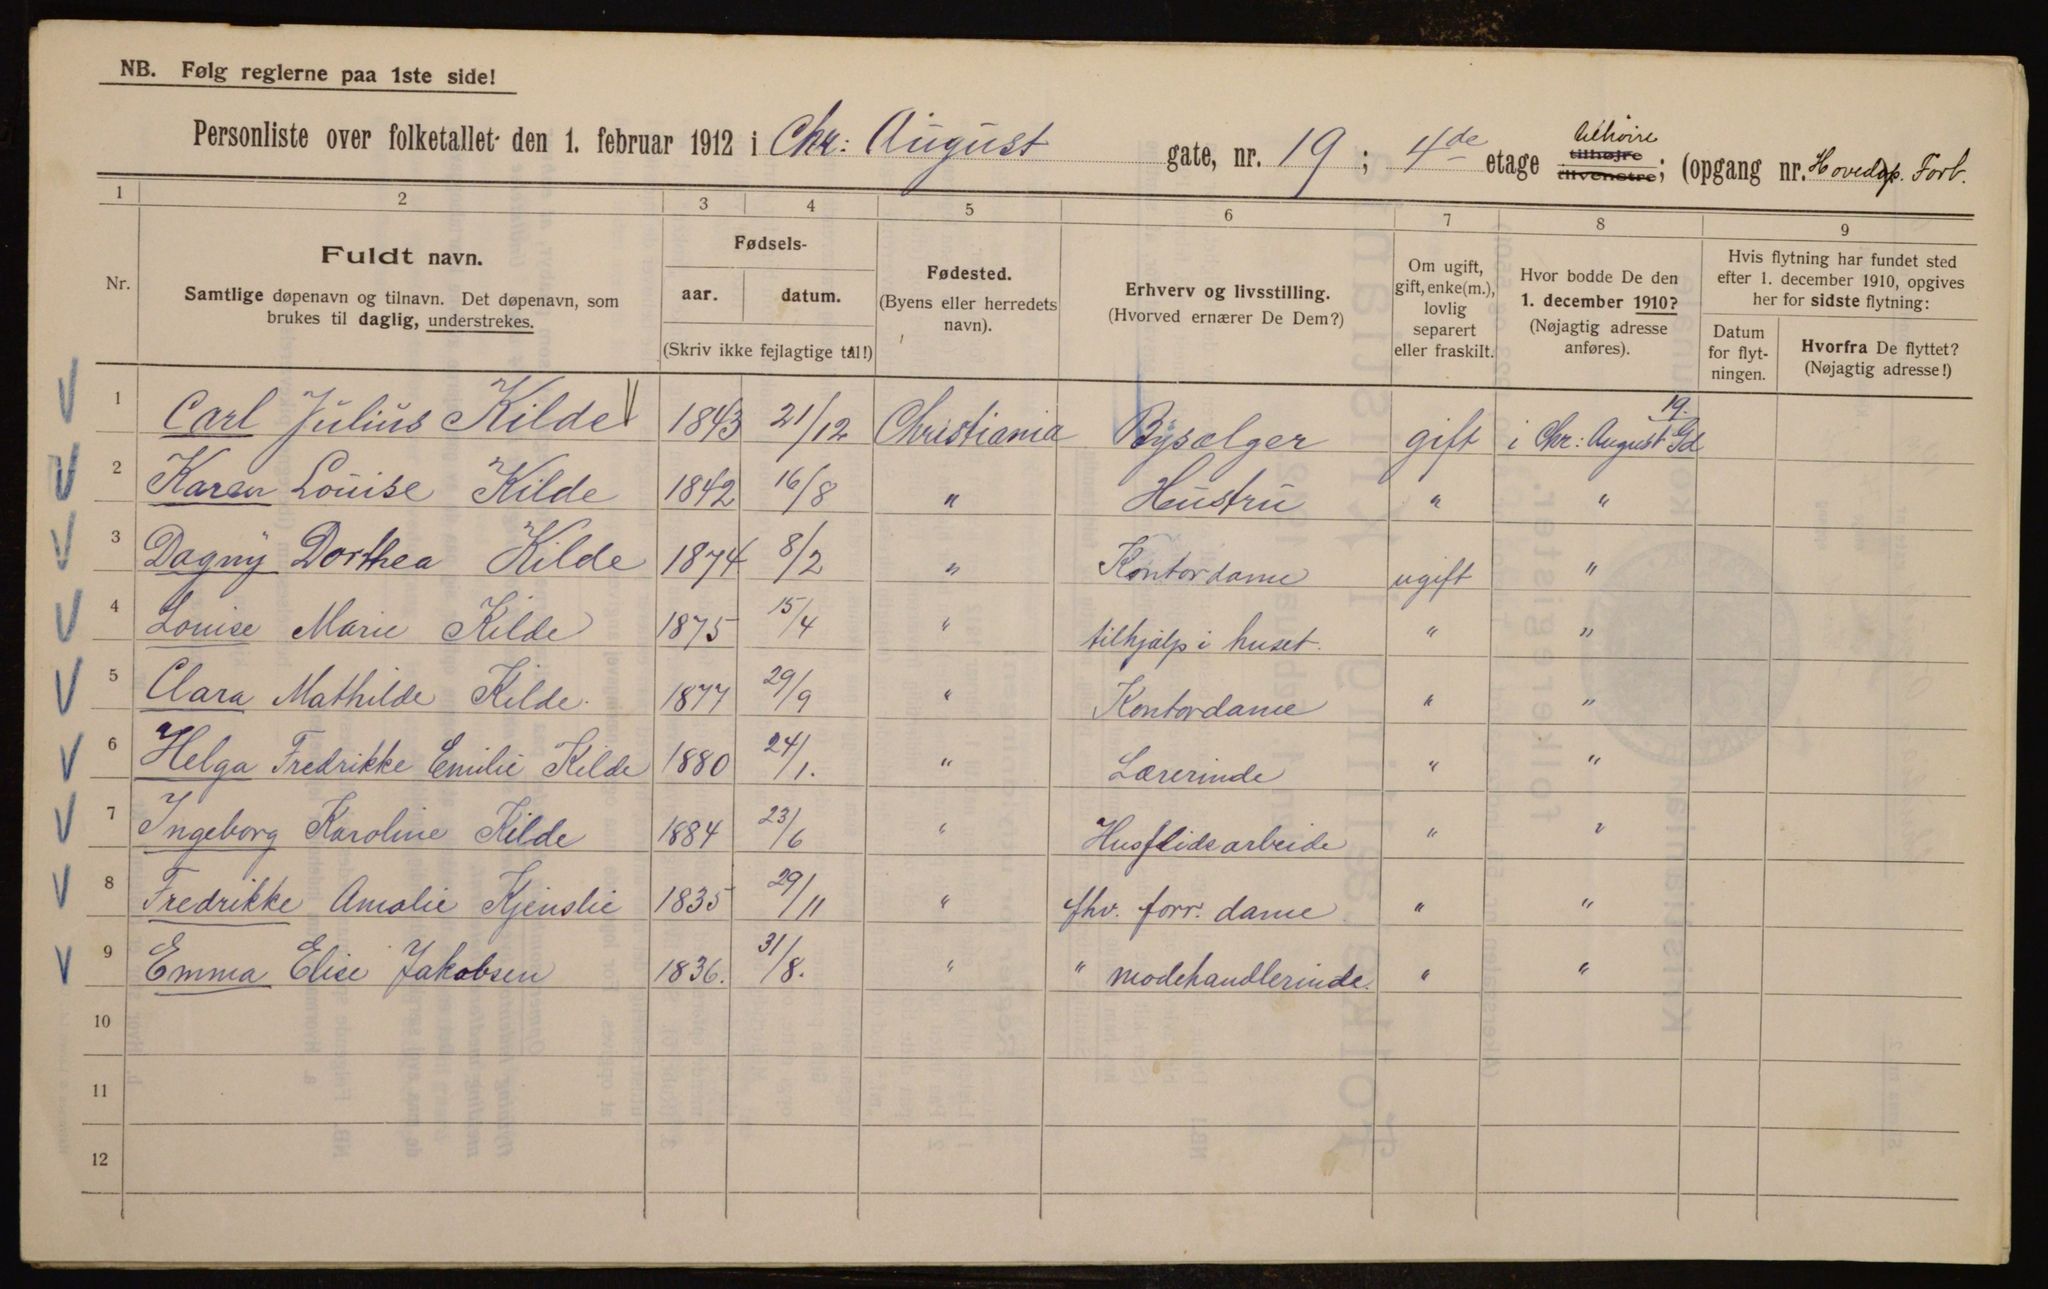 NB. Følg reglerne paa 1ste side!
Personliste over folketallet den 1. februar 1912 i Chr: August gate, nr. 19 ; 4de etage tilhøire tilhøjre tilvenstre; (opgang nr. Hovedop. Forb.
1 2 3 4 5 6 7 8 9
Nr. Fuldt navn. Samtlige døpenavn og tilnavn. Det døpenavn, som brukes til daglig, understrekes.
Fødsels- aar. datum. (Skriv ikke fejlagtige tal!)
Fødested. (Byens eller herredets navn).
Erhverv og livsstilling. (Hvorved ernærer De Dem?)
Om ugift, gift, enke(m.), lovlig separert eller fraskilt.
Hvor bodde De den 1. december 1910? (Nøjagtig adresse anføres).
Hvis flytning har fundet sted efter 1. december 1910, opgives her for sidste flytning:
Datum for flyt- ningen.
Hvorfra De flyttet? (Nøjagtig adresse!)
1 Carl Julius Kilde 1843 21/12 Christiania Bysælger gift i Chr: August Gd 19.
2 Karen Louise Kilde 1842 16/8 " Hustru " "
3 Dagny Dorthea Kilde 1874 8/2 " Kontordame ugift "
4 Louise Marie Kilde 1875 15/4 " tilhjælp i huset. " "
5 Clara Mathilde Kilde. 1877 29/9 " Kontordame " "
6 Helga Fredrikke Emilie Kilde 1880 24/1. " Lærerinde " "
7 Ingeborg Karoline Kilde 1884 23/6 " Husflidsarbeide " "
8 Fredrikke Amalie Kjenslie 1835 29/11 " fhv. forr. dame " "
9 Emma Elise Jakobsen 1836. 31/8. " " modehandlerinde. " "
10
11
12